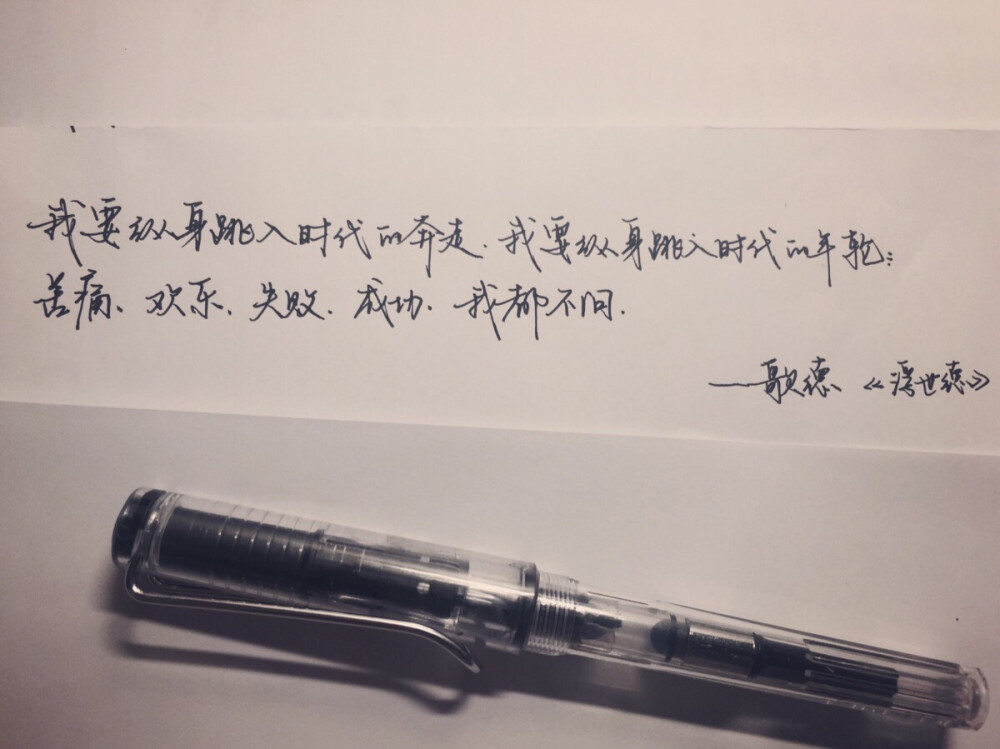 我要纵身跳入时代的奔走，我要纵身跳入时代的年轮：
苦痛、欢乐、失败、成功，我都不问。
——歌德《浮世德》